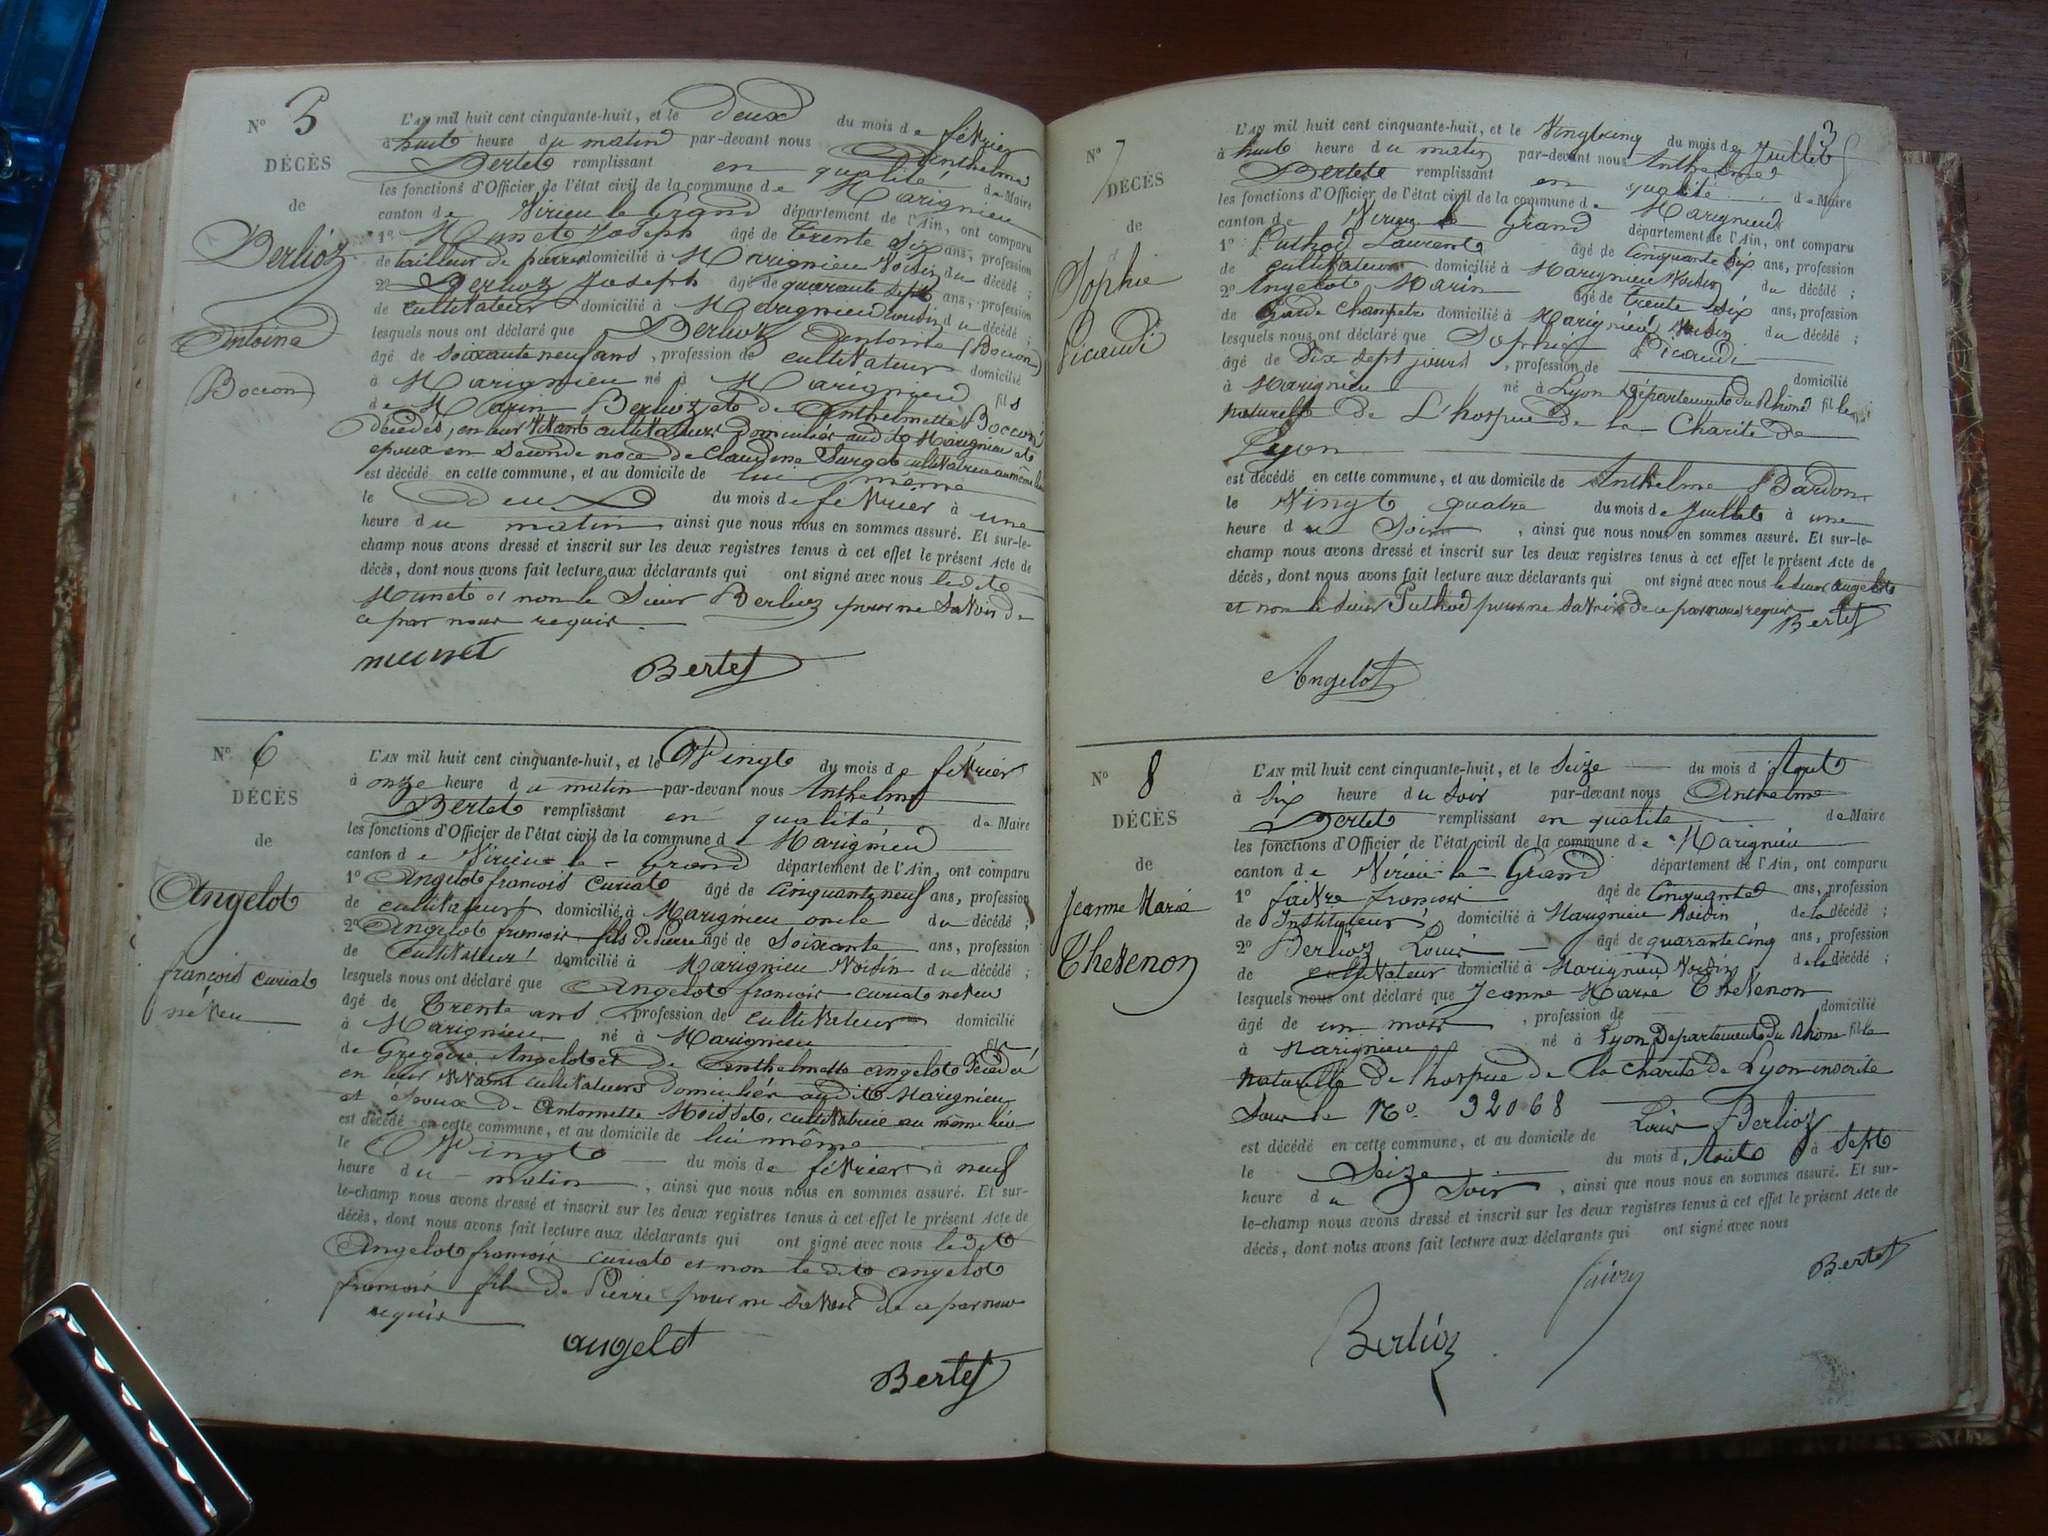 Nº 5
DÉCÈS
de
Berlioz
Antoine
Boccon
L'AN mil huit cent cinquante-huit, et le deux du mois de février
à huit heure du matin par-devant nous Anthelme
Bertet remplissant en qualité de Maire
les fonctions d'Officier de l'état civil de la commune de Marignieu
canton de Virieu le Grand département de l'Ain, ont comparu
1º Munet Joseph âgé de trente six ans, profession
de tailleur de pierre domicilié à Marignieu voisin du décédé ;
2º Berlioz Joseph âgé de quarante sept ans, profession
de cultivateur domicilié à Marignieu voisin du décédé ;
lesquels nous ont déclaré que Berlioz Antoine (Boccon)
âgé de soixante neuf ans, profession de cultivateur domicilié
à Marignieu né à Marignieu fils
de Marin Berlioz et de Anthelmette Boccon
décédés, en leur vivant cultivateurs domiciliés audit Marignieu et
époux en seconde noce de Claudine Surget cultivatrice au même lieu
est décédé en cette commune, et au domicile de lui même
le deux du mois de février à une
heure du matin ainsi que nous nous en sommes assuré. Et sur-le-
champ nous avons dressé et inscrit sur les deux registres tenus à cet effet le présent Acte de
décès, dont nous avons fait lecture aux déclarants qui ont signé avec nous ledit
Munet et non le Sieur Berlioz pour ne savoir de
ce par nous requis
munet Bertet
Nº 6
DÉCÈS
de
Angelot
françois curiat
neveu
L'AN mil huit cent cinquante-huit, et le Vingt du mois de février
à onze heure du matin par-devant nous Anthelme
Bertet remplissant en qualité de Maire
les fonctions d'Officier de l'état civil de la commune d Marignieu
canton de Virieu-le-Grand département de l'Ain, ont comparu
1º Angelot françois curiat âgé de cinquante neuf ans, profession
de cultivateur domicilié à Marignieu oncle du décédé ;
2º Angelot françois fils de Pierre âgé de soixante ans, profession
de cultivateur domicilié à Marignieu voisin du décédé ;
lesquels nous ont déclaré que Angelot françois curiat neveu
âgé de trente ans, profession de cultivateur domicilié
à Marignieu né à Marignieu fils
de Gregoire Angelot et de Anthelmette angelot décédé
en leur vivant cultivateurs domiciliés audit Marignieu
et époux de Antoinette Moisset, cultivatrice au même lieu
est décédé en cette commune, et au domicile de lui même
le Vingt du mois de février à neuf
heure du matin, ainsi que nous nous en sommes assuré. Et sur-
le-champ nous avons dressé et inscrit sur les deux registres tenus à cet effet le présent Acte de
décès, dont nous avons fait lecture aux déclarants qui ont signé avec nous ledit
Angelot françois curiat et non le dit angelot
françois fils de Pierre pour ne savoir de ce par nous
requis
angelot
Bertet
3
Nº 7
DÉCÈS
de
Sophie
Picaudi
L'AN mil huit cent cinquante-huit, et le Vingt cinq du mois de Juillet
à huit heure du matin par-devant nous Anthelme
Bertet remplissant en qualité de Maire
les fonctions d'Officier de l'état civil de la commune de Marignieu
canton de Virieu le Grand département de l'Ain, ont comparu
1º Puthod Laurent âgé de Cinquante six ans, profession
de cultivateur domicilié à Marignieu voisin du décédé ;
2º Angelot Marin âgé de trente six ans, profession
de Garde Champetre domicilié à Marignieu voisin du décédé ;
lesquels nous ont déclaré que Sophie Picaudi
âgé de dix sept jours, profession de domicilié
à Marignieu né à Lyon Département du Rhône fille
naturelle de L'hospice de la Charité de
Lyon
est décédé en cette commune, et au domicile de Anthelme Bardon
le Vingt quatre du mois de Juillet à une
heure du Soir, ainsi que nous nous en sommes assuré. Et sur-le-
champ nous avons dressé et inscrit sur les deux registres tenus à cet effet le présent Acte de
décès, dont nous avons fait lecture aux déclarants qui ont signé avec nous le sieur angelot
et non le sieur Puthod pour ne savoir de ce par nous requis Bertet
Angelot
Nº 8
DÉCÈS
de
Jeanne Marie
Thevenon
L'AN mil huit cent cinquante-huit, et le Seize du mois d'Aout
à six heure du soir par-devant nous Anthelme
Bertet remplissant en qualité de Maire
les fonctions d'Officier de l'état civil de la commune de Marignieu
canton de Virieu-le-Grand département de l'Ain, ont comparu
1º faivre françois âgé de Cinquante ans, profession
de Instituteur domicilié à Marignieu Voisin de la décédé ;
2º Berlioz Louis âgé de quarante cinq ans, profession
de cultivateur domicilié à Marignieu Voisin de la décédé ;
lesquels nous ont déclaré que Jeanne Marie Thevenon
âgé de un mois, profession de domicilié
à Marignieu né à Lyon Département du Rhone fille
naturelle de l'hospice de la charité de Lyon inscrite
sous le No. 32068
est décédé en cette commune, et au domicile de Louis Berlioz
le Seize du mois d'Aout à sept
heure du Soir, ainsi que nous nous en sommes assuré. Et sur-
le-champ nous avons dressé et inscrit sur les deux registres tenus à cet effet le présent Acte de
décès, dont nous avons fait lecture aux déclarants qui ont signé avec nous
Bertet
Berlioz